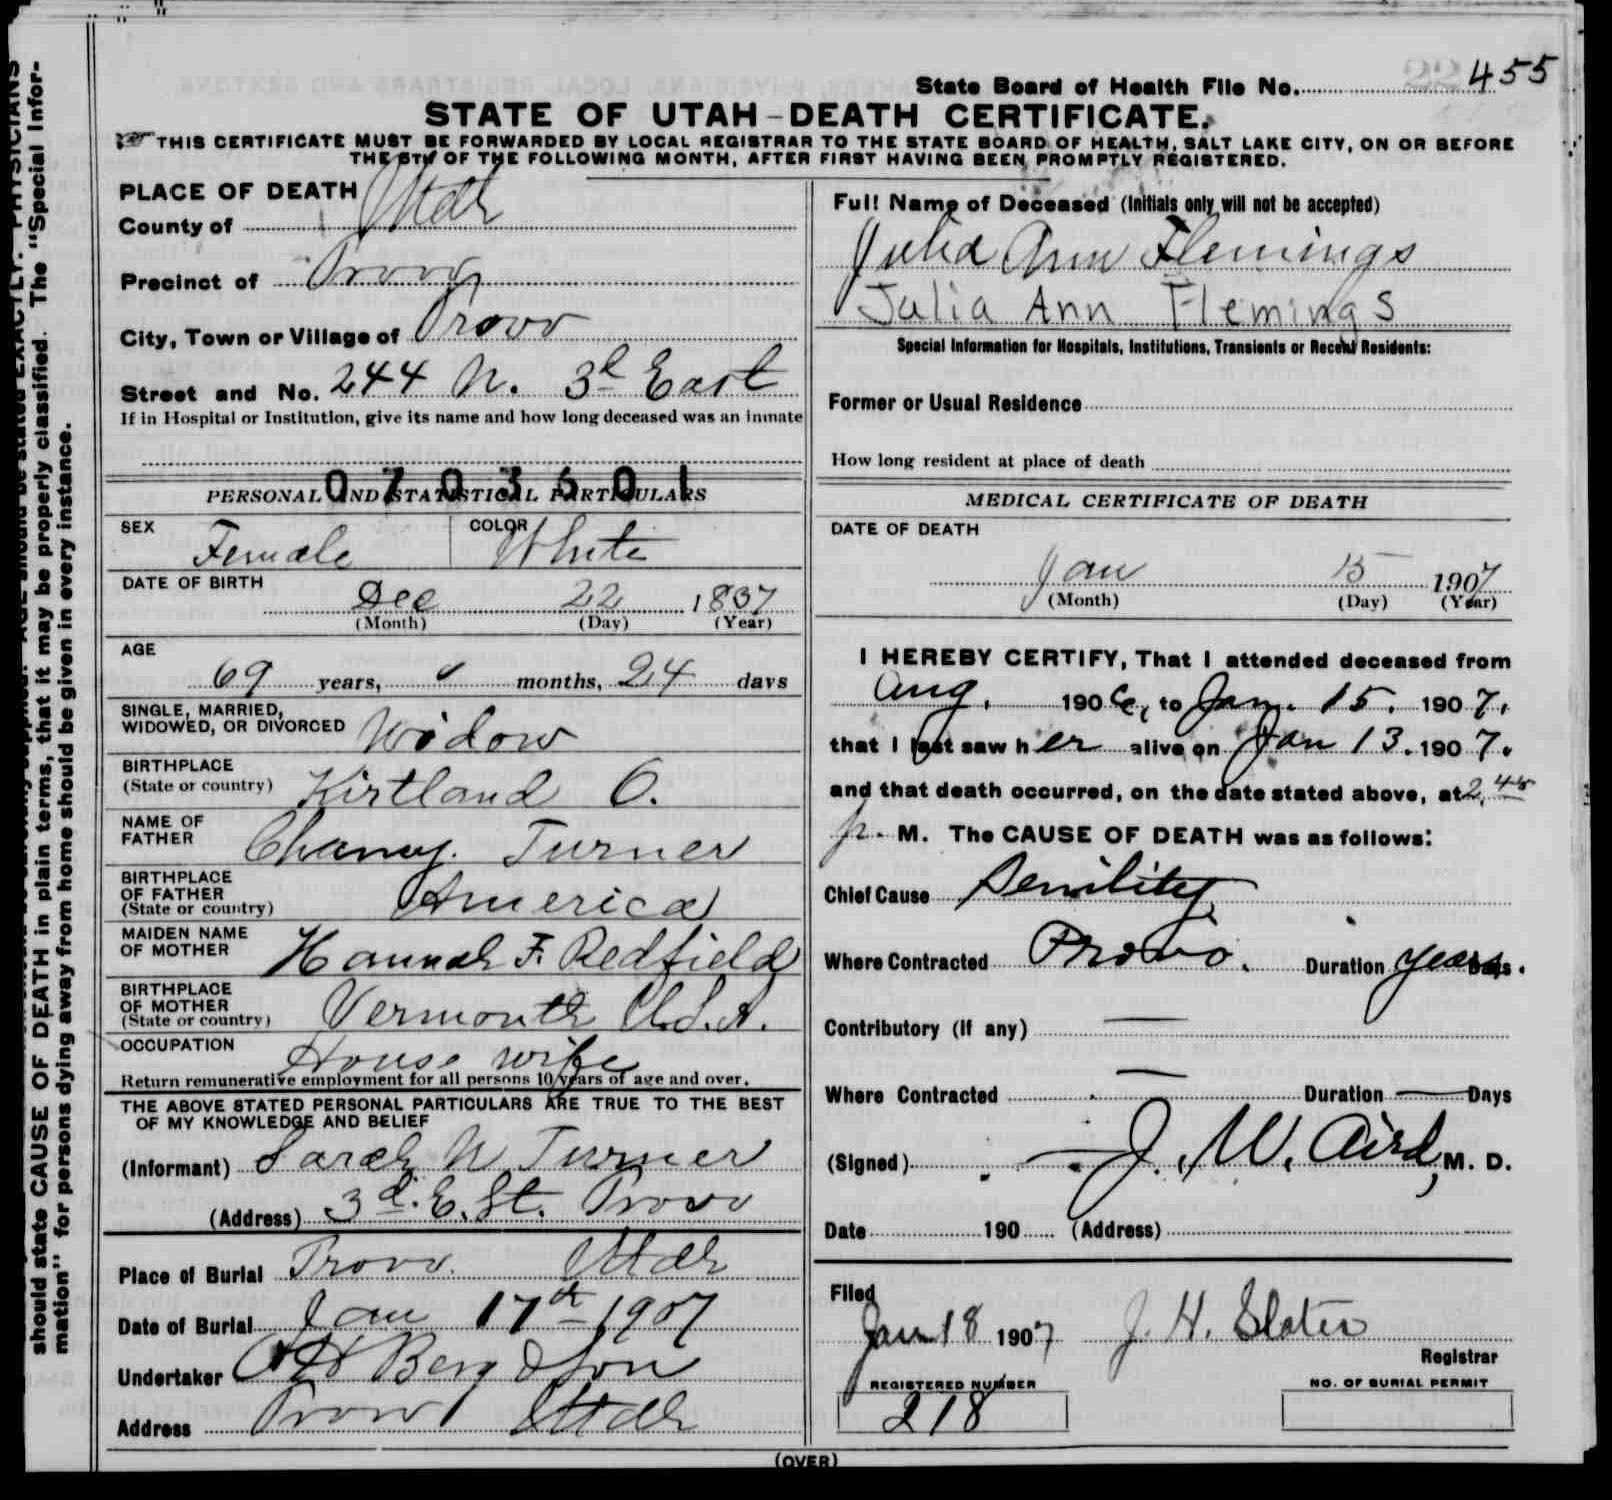 State Board of Health File No. 455
STATE OF UTAH-DEATH CERTIFICATE.
THIS CERTIFICATE MUST BE FORWARDED BY LOCAL REGISTRAR TO THE STATE BOARD OF HEALTH, SALT LAKE CITY, ON OR BEFORE
THE 5TH OF THE FOLLOWING MONTH, AFTER FIRST HAVING BEEN PROMPTLY REGISTERED.
PLACE OF DEATH
County of Utah
Precinct of Provo
City, Town or Village of Provo
Street and No. 244 N. 3d East
If in Hospital or Institution, give its name and how long deceased was an inmate
0703601
PERSONAL AND STATISTICAL PARTICULARS
SEX Female COLOR White
DATE OF BIRTH
Dec 22 1837
(Month) (Day) (Year)
AGE
69 years, 0 months, 24 days
SINGLE, MARRIED,
WIDOWED, OR DIVORCED Widow
BIRTHPLACE
(State or country) Kirtland O.
NAME OF
FATHER Chancy. Turner
BIRTHPLACE
OF FATHER
(State or country) America
MAIDEN NAME
OF MOTHER Hannah F. Redfield
BIRTHPLACE
OF MOTHER
(State or country) Vermonth U.S.A.
OCCUPATION House wife
Return remunerative employment for all persons 10 years of age and over.
THE ABOVE STATED PERSONAL PARTICULARS ARE TRUE TO THE BEST
OF MY KNOWLEDGE AND BELIEF
(Informant) Sarah W Turner
(Address) 3d. E. St. Provo
Place of Burial Provo. Utah
Date of Burial Jan 17th 1907
Undertaker Berg & Son
Address Provo Utah
Full Name of Deceased (Initials only will not be accepted)
Julia Ann Flemings
Julia Ann Flemings
Special Information for Hospitals, Institutions, Transients or Recent Residents:
Former or Usual Residence
How long resident at place of death
MEDICAL CERTIFICATE OF DEATH
DATE OF DEATH
Jan 15 1907
(Month) (Day) (Year)
I HEREBY CERTIFY, That I attended deceased from
Aug. 1906, to Jan. 15. 1907.
that I last saw her alive on Jan 13. 1907.
and that death occurred, on the date stated above, at 2.45
p. M. The CAUSE OF DEATH was as follows:
Chief Cause Senility
Where Contracted Provo. Duration years.
Contributory (if any) —
Where Contracted — Duration — Days
(Signed) J. W. Aird, M. D.
Date 190 (Address)
Filed
Jan 18 1907 J. H. Slater
Registrar
REGISTERED NUMBER
218
NO. OF BURIAL PERMIT
(OVER)
should state CAUSE OF DEATH in plain terms, that it may be properly classified. The "Special Infor-
mation" for persons dying away from home should be given in every instance.